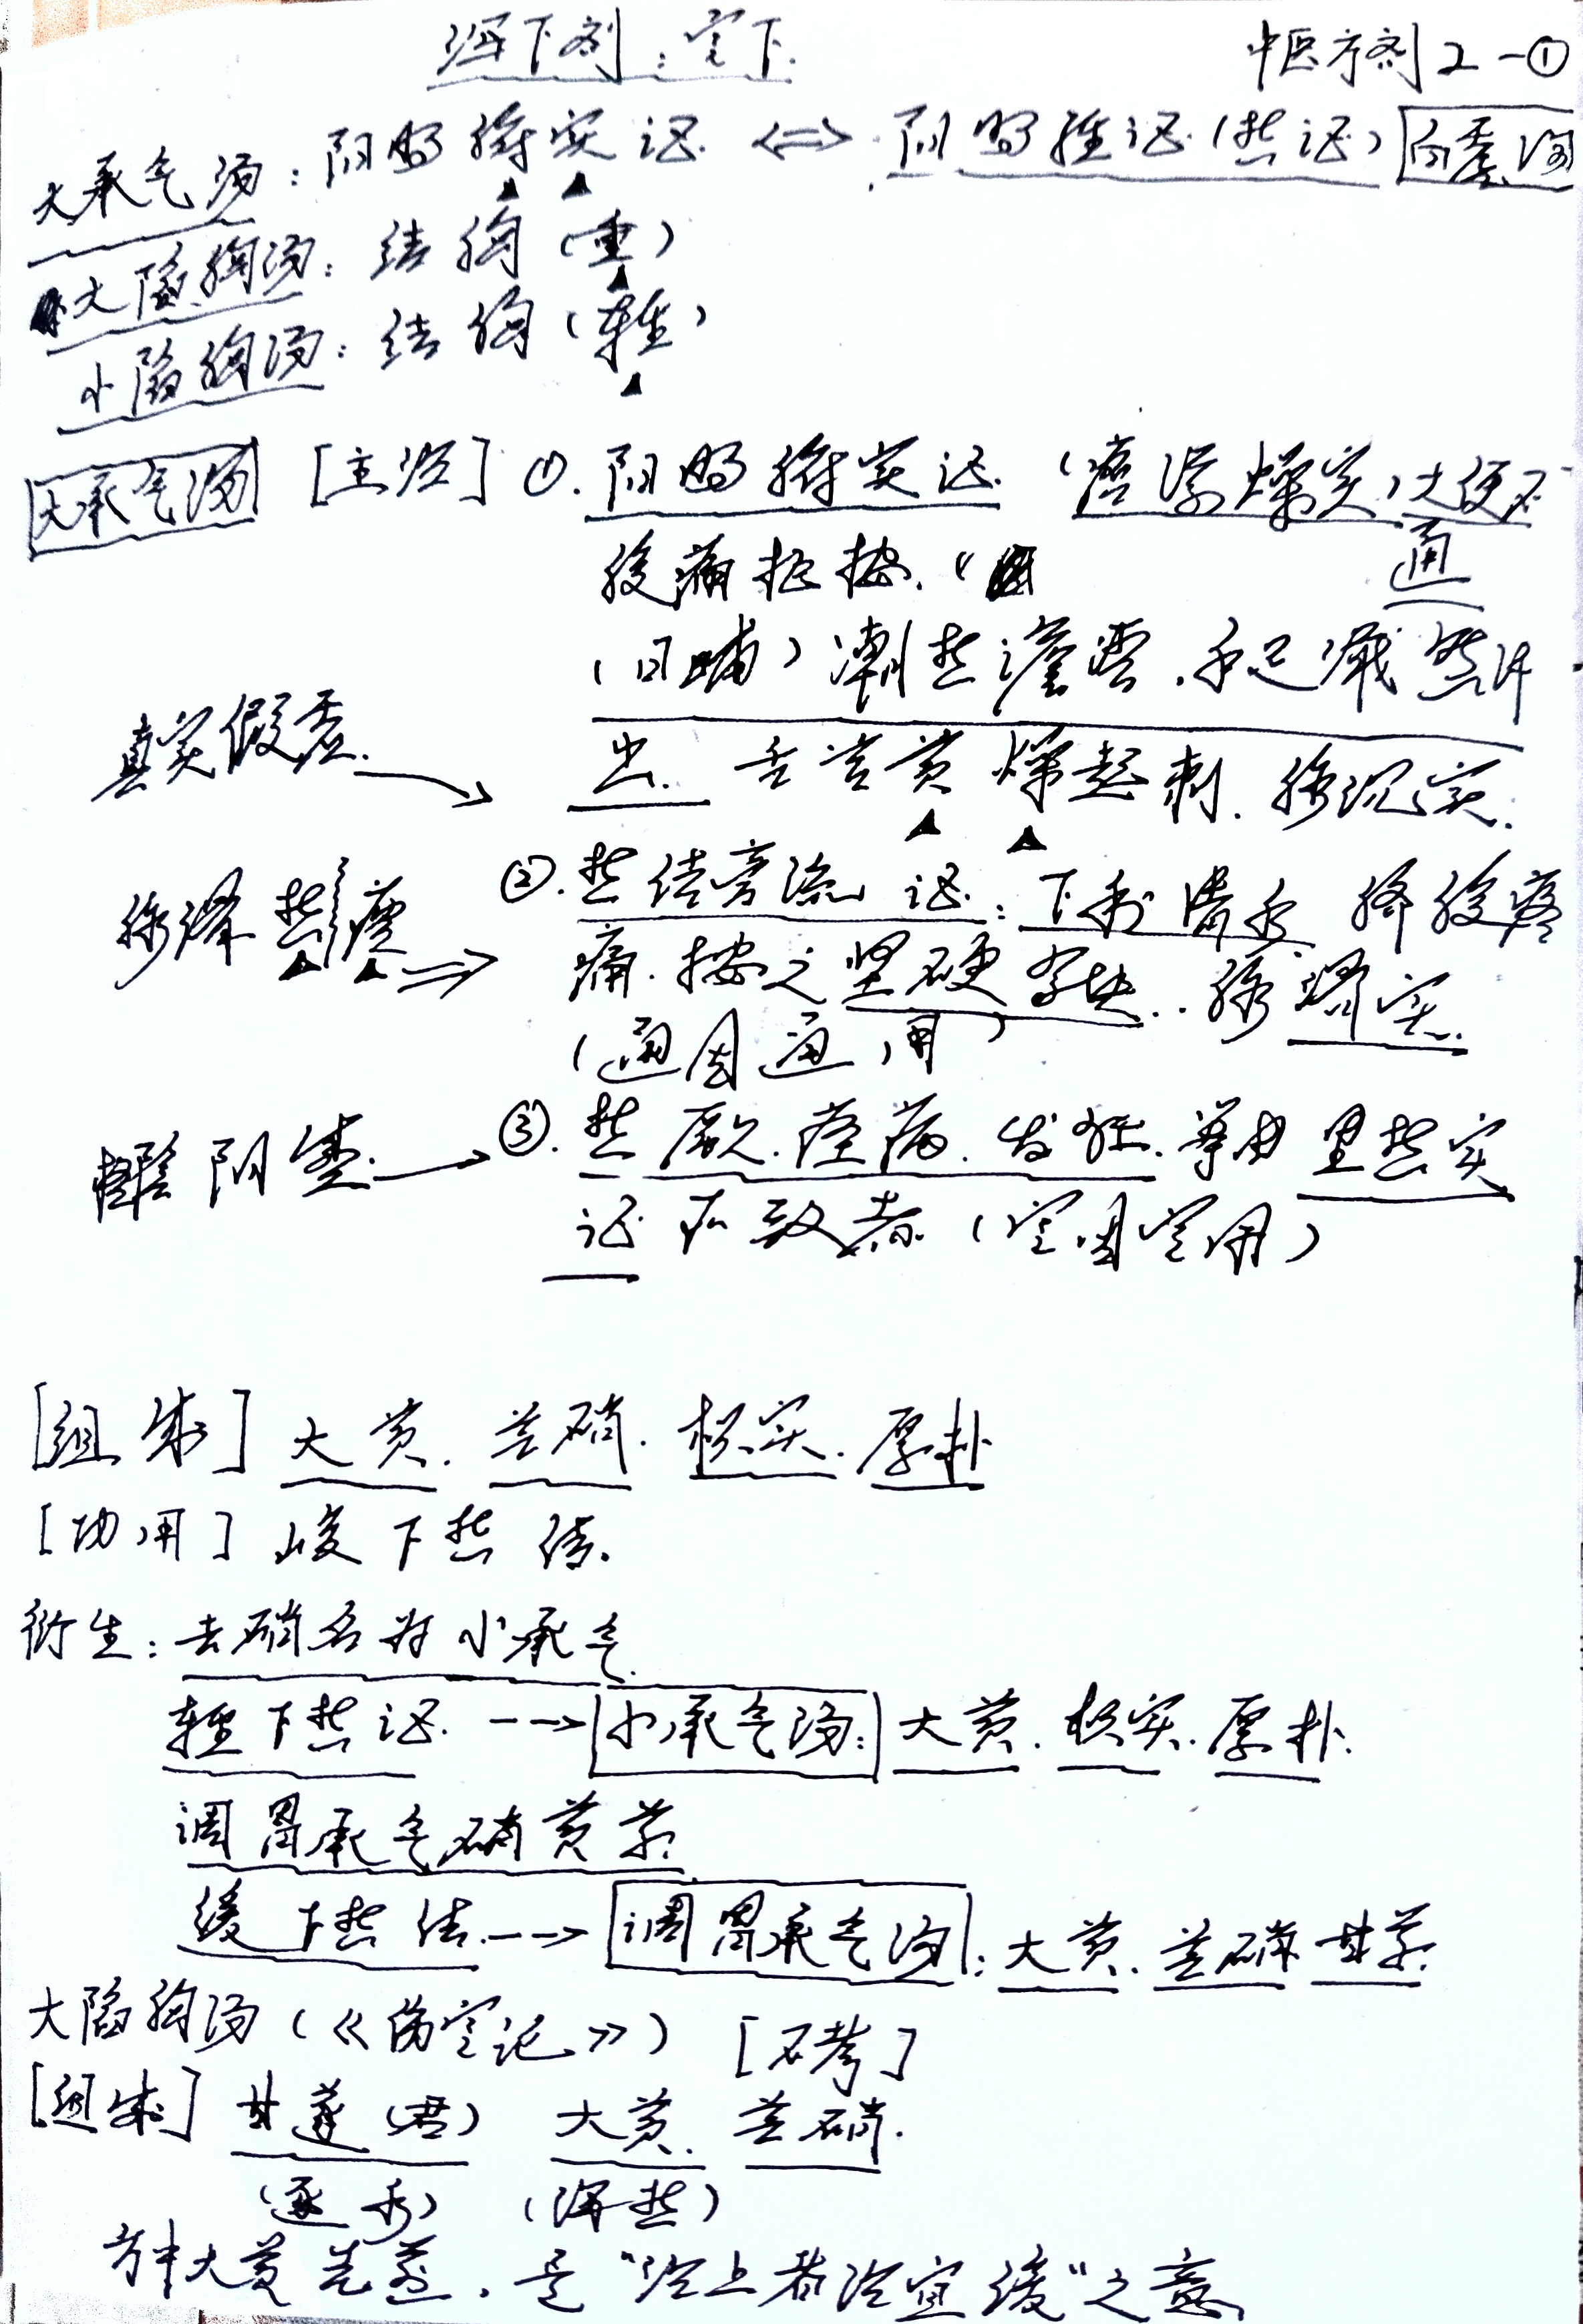 泻下剂：寒下.
中医方剂2-①
大承气汤：阳明腑实证. <=> 阳明经证(热证) 白虎汤
大陷胸汤：结胸(重)
小陷胸汤：结胸(轻)
大承气汤 [主治] ①.阳明腑实证.(痞满燥实)大便不通
腹痛拒按.(
(日晡)潮热谵语.手足濈然汗
真实假虚. → 出. 舌苔黄燥起刺. 脉沉实.
脉滑 热 ⇒ ②.热结旁流证.：下利清水 脐腹疼
痛.按之坚硬有块..脉滑实.
(通因通用)
阴 → ③.热厥.痉病.发狂.等由里热实
证所致者.(寒因寒用)
[组成] 大黄.芒硝.枳实.厚朴
[功用] 峻下热结.
衍生：去硝名为小承气.
轻下热证. --→ 小承气汤：大黄.枳实.厚朴.
调胃承气硝黄草.
缓下热结.--→ 调胃承气汤：大黄.芒硝.甘草.
大陷胸汤(《伤寒论》) [不考]
[组成] 甘遂(君) 大黄.芒硝.
(逐水) (泻热)
方中大黄先煎.是“治上者治宜缓”之意